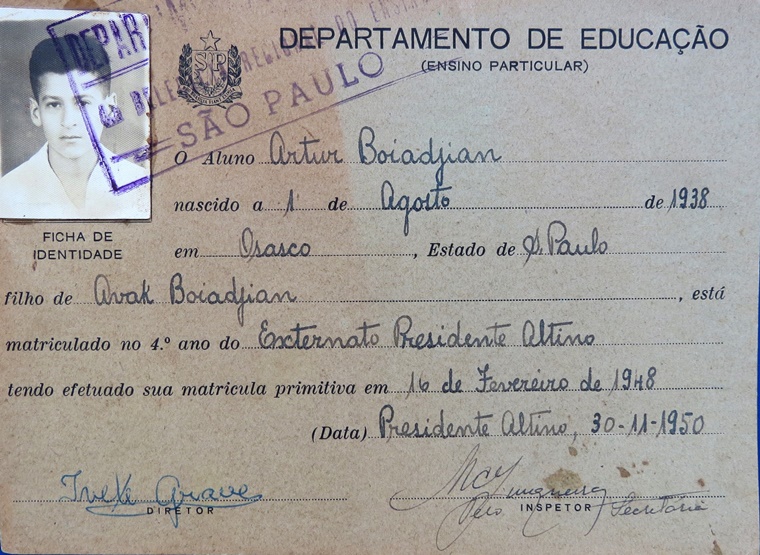 DEPARTAMENTO DE EDUCAÇÃO
(ENSINO PARTICULAR)
SP
SÃO PAULO
O Aluno Artur Boiadjian
nascido a 1 de Agosto de 1938
FICHA DE
IDENTIDADE
em Osasco, Estado de S. Paulo
filho de Avak Boiadjian, está
matriculado no 4.º ano do Externato Presidente Altino
tendo efetuado sua matricula primitiva em 16 de Fevereiro de 1948
(Data) Presidente Altino, 30-11-1950
DIRETOR
INSPETOR Secretária